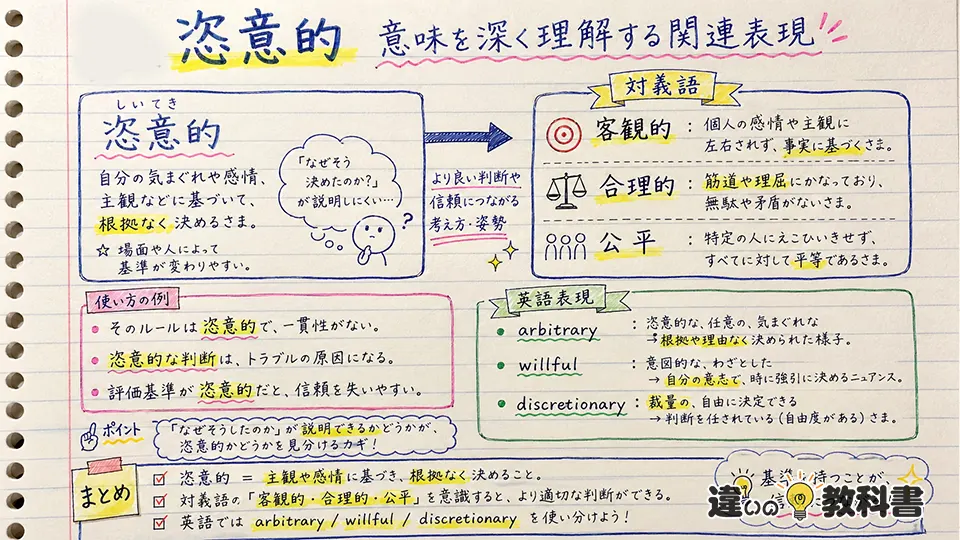 恣意的 意味を深く理解する関連表現
しいてき
恣意的
自分の気まぐれや感情、
主観などに基づいて、
根拠なく決めるさま。
☆ 場面や人によって
基準が変わりやすい。
「なぜそう
決めたのか？」
が説明しにくい…
?
より良い判断や
信頼につながる
考え方・姿勢
対義語
客観的 : 個人の感情や主観に
左右されず、事実に基づくさま。
合理的 : 筋道や理屈にかなっており、
無駄や矛盾がないさま。
公平 : 特定の人にえこひいきせず、
すべてに対して平等であるさま。
使い方の例
• そのルールは恣意的で、一貫性がない。
• 恣意的な判断は、トラブルの原因になる。
• 評価基準が恣意的だと、信頼を失いやすい。
英語表現
• arbitrary : 恣意的な、任意の、気まぐれな
→根拠や理由なく決められた様子。
• willful : 意図的な、わざとした
→ 自分の意志で、時に強引に決めるニュアンス。
• discretionary : 裁量の、自由に決定できる
→判断を任されている（自由度がある）さま。
ポイント
「なぜそうしたのか」が説明できるかどうかが、
恣意的かどうかを見分けるカギ！
まとめ
☑ 恣意的 = 主観や感情に基づき、根拠なく決めること。
☑ 対義語の「客観的・合理的・公平」を意識すると、より適切な判断ができる。
☑ 英語では arbitrary / willful / discretionary を使い分けよう！
基準 持つことが
信
違いの教科書